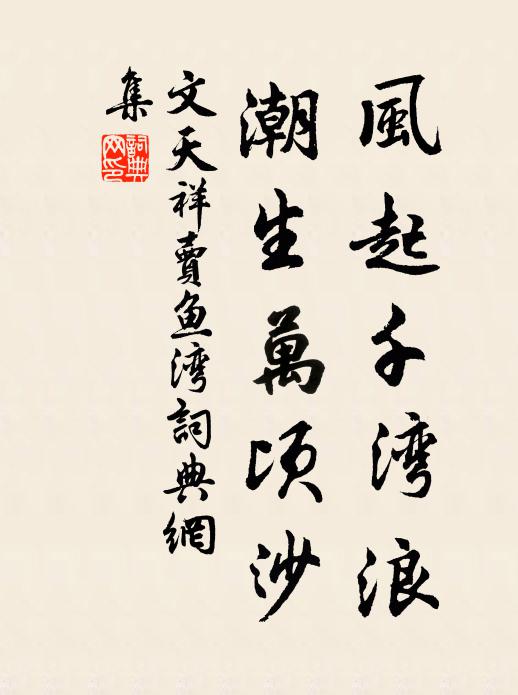 風起千湾浪
潮生萬頃沙
文天祥賣魚湾詞典網
集
詞典网印